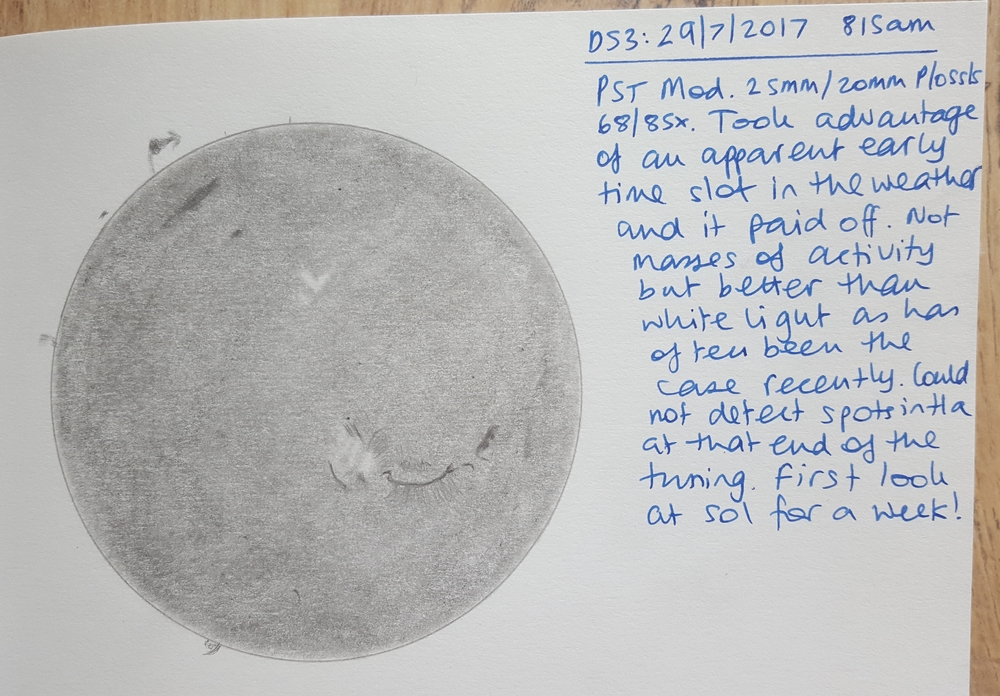 DS3: 29/7/2017 815am
PST Mod. 25mm/20mm Plossls
68/85x. Took advantage
of an apparent early
time slot in the weather
and it paid off. Not
masses of activity
but better than
white light as has
often been the
case recently. Could
not detect spots in Ha
at that end of the
tuning. First look
at sol for a week!